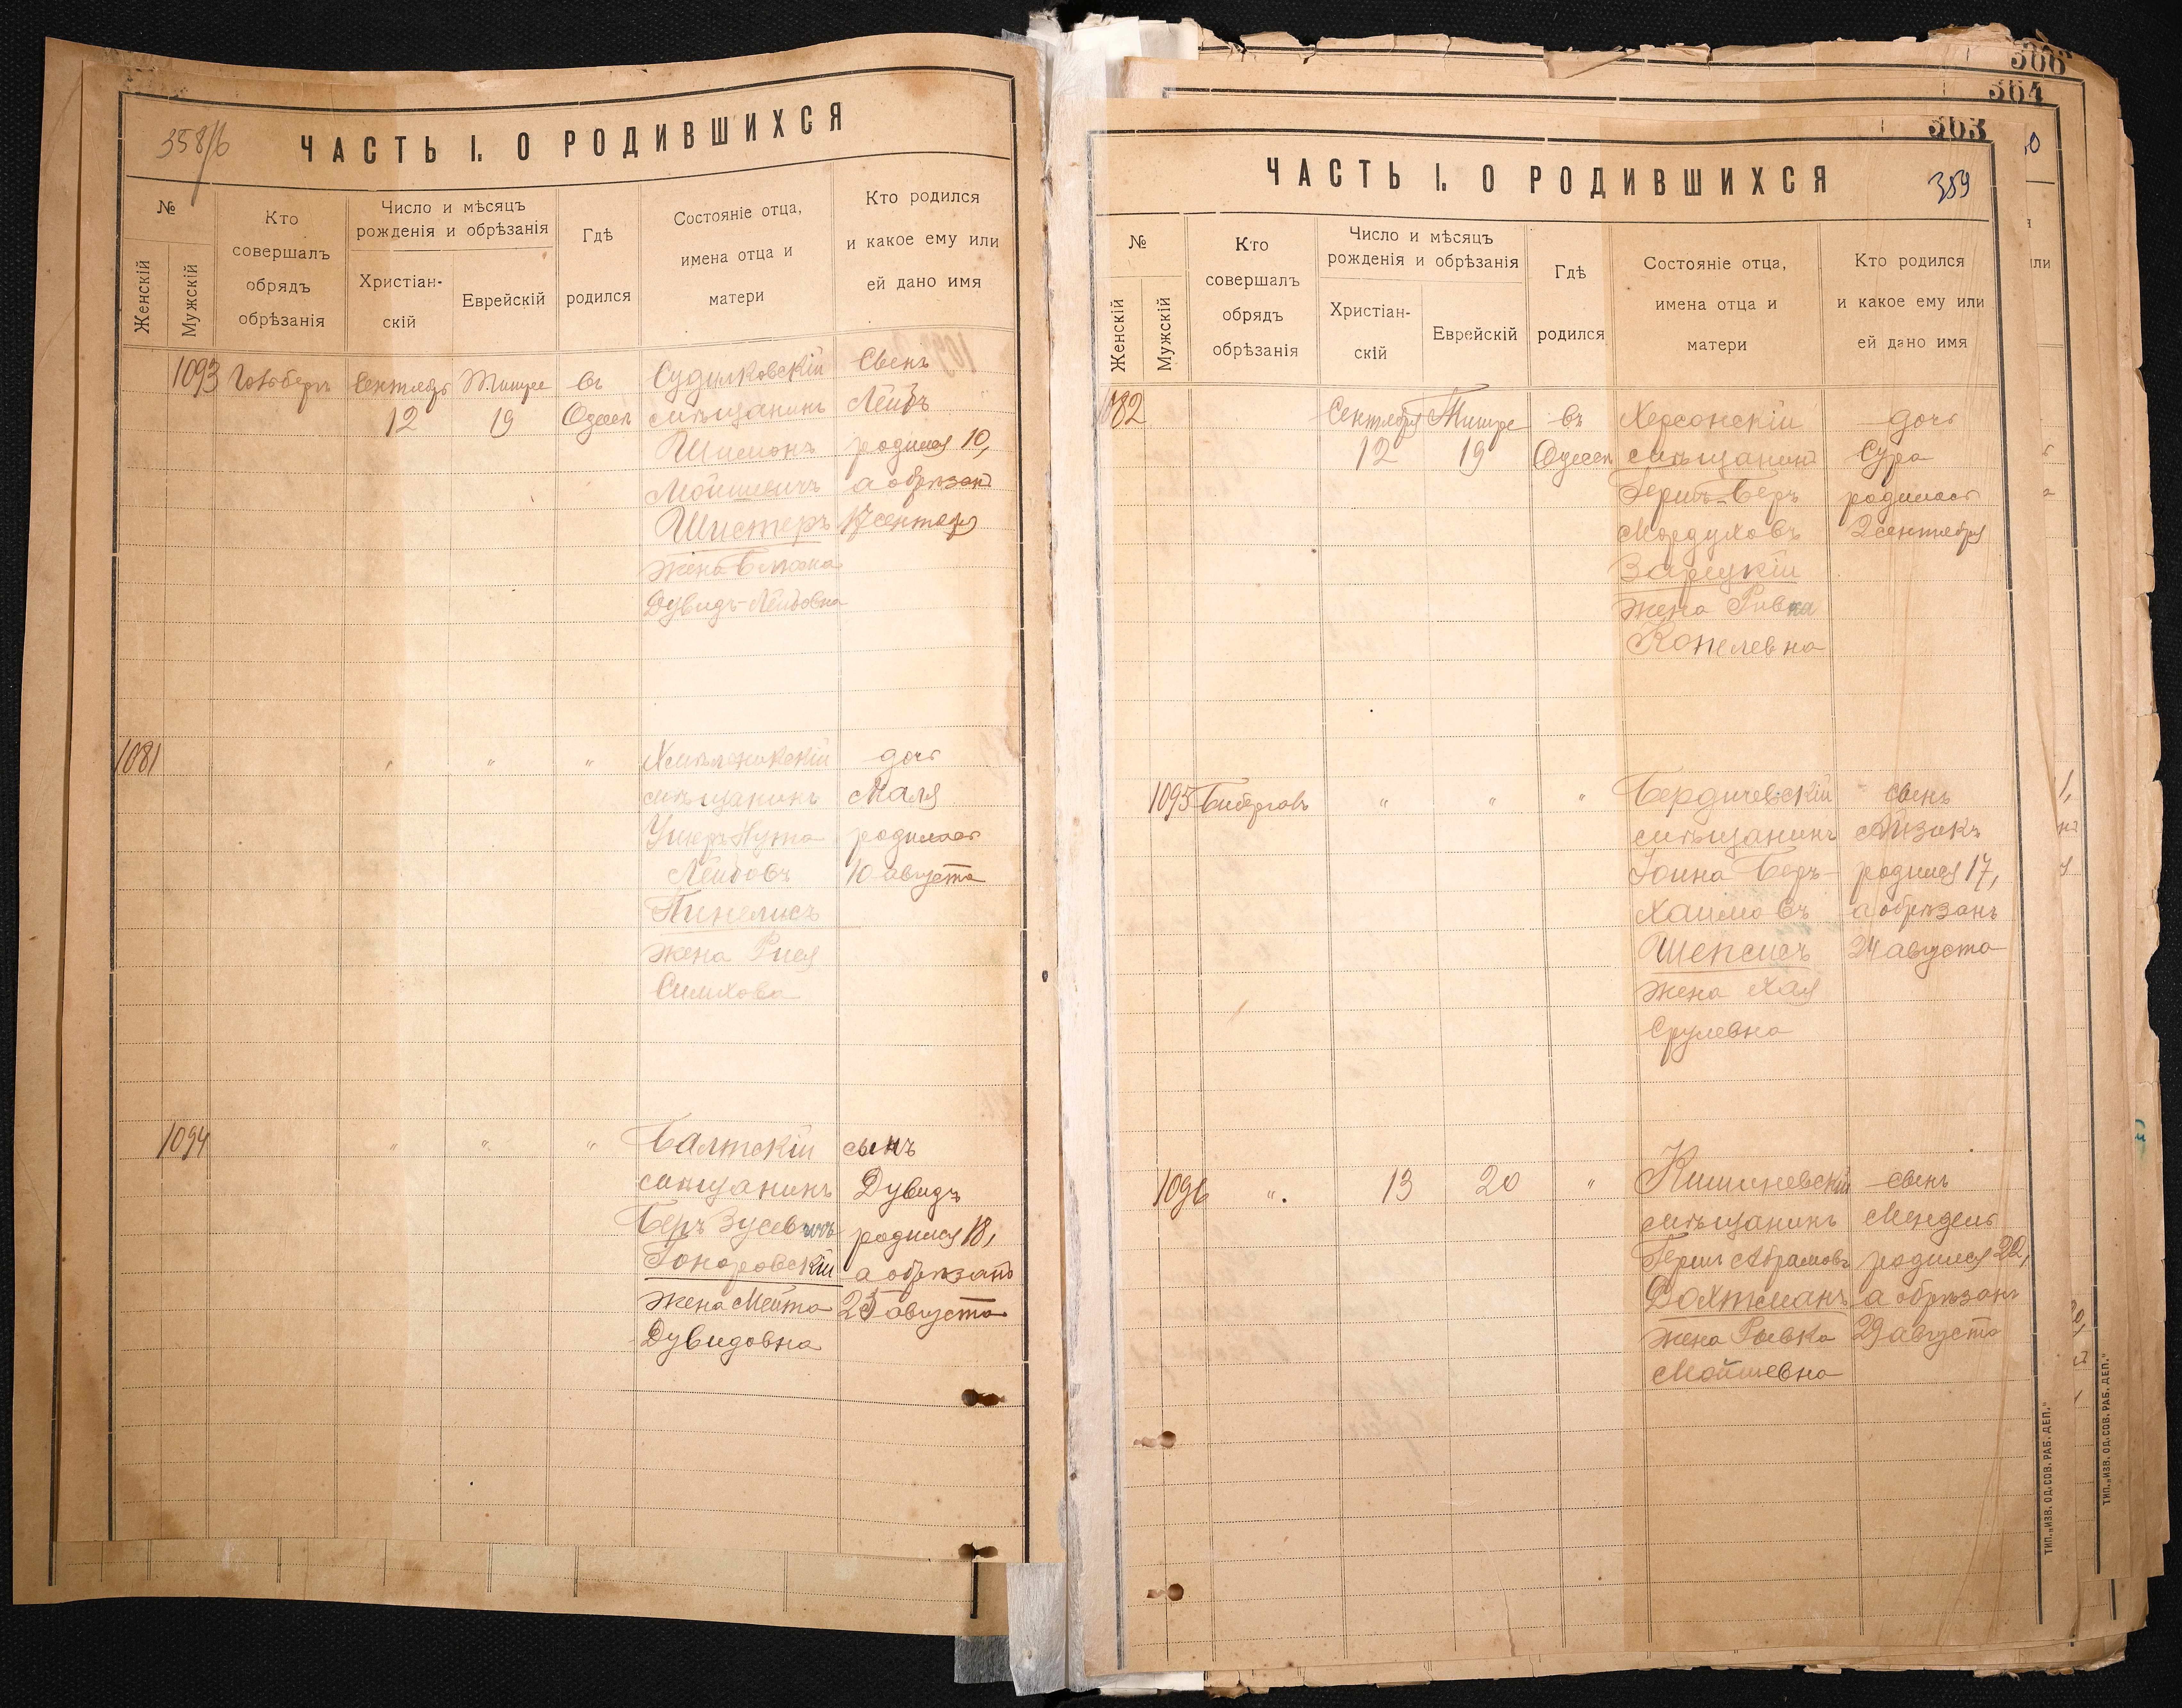 358/б
ЧАСТЬ I. О РОДИВШИХСЯ
№
Женскій
Мужскій
Кто
совершалъ
обрядъ
обрѣзанія
Число и мѣсяцъ
рожденія и обрѣзанія
Христіан-
скій
Еврейскій
Гдѣ
родился
Состояніе отца,
имена отца и
матери
Кто родился
и какое ему или
ей дано имя
1093
Сентябрь
12
Тишре
19
въ
Одессѣ
Судилковскій
мѣщанинъ
Шимонъ
Мойшевичъ
Шистеръ
жена Блюма
Дувидъ-Лейбовна
Сынъ
Лейбъ
родился 10,
а обрѣзанъ
17 сентября
1081
"
"
"
Хмѣльникскій
мѣщанинъ
Ушеръ Нута
Лейбовъ
Пинелисъ
жена Рися
Симхова
дочь
Маля
родилась
10 августа
1094
"
"
"
Балтскій
мѣщанинъ
Беръ Зусевичъ
Гоноровскій
жена Мейта
Дувидовна
сынъ
Дувидъ
родился 18,
а обрѣзанъ
25 августа
306
364
363
ЧАСТЬ I. О РОДИВШИХСЯ
359
№
Женскій
Мужскій
Кто
совершалъ
обрядъ
обрѣзанія
Число и мѣсяцъ
рожденія и обрѣзанія
Христіан-
скій
Еврейскій
Гдѣ
родился
Состояніе отца,
имена отца и
матери
Кто родился
и какое ему или
ей дано имя
1082
Сентября
12
Тишре
19
въ
Одессѣ
Херсонскій
мѣщанинъ
Гершъ-Беръ
Мордуховъ
Зарецкій
жена Ривка
Копелевна
дочь
Сура
родилась
2 сентября
1095
"
"
"
Бердичевскій
мѣщанинъ
Іойна Беръ-
Хаимовъ
Шепсисъ
жена Хая
Срулевна
сынъ
Айзикъ
родился 17,
а обрѣзанъ
24 августа
1096
".
13
20
"
Кишиневскій
мѣщанинъ
Гершъ Абрамовъ
Вохтманъ
жена Рывка
Мойшевна
сынъ
Мендель
родился 22,
а обрѣзанъ
29 августа
ТИП. „ИЗВ. ОД. СОВ. РАБ. ДЕП."
ТИП. „ИЗВ. ОД. СОВ. РАБ. ДЕП."